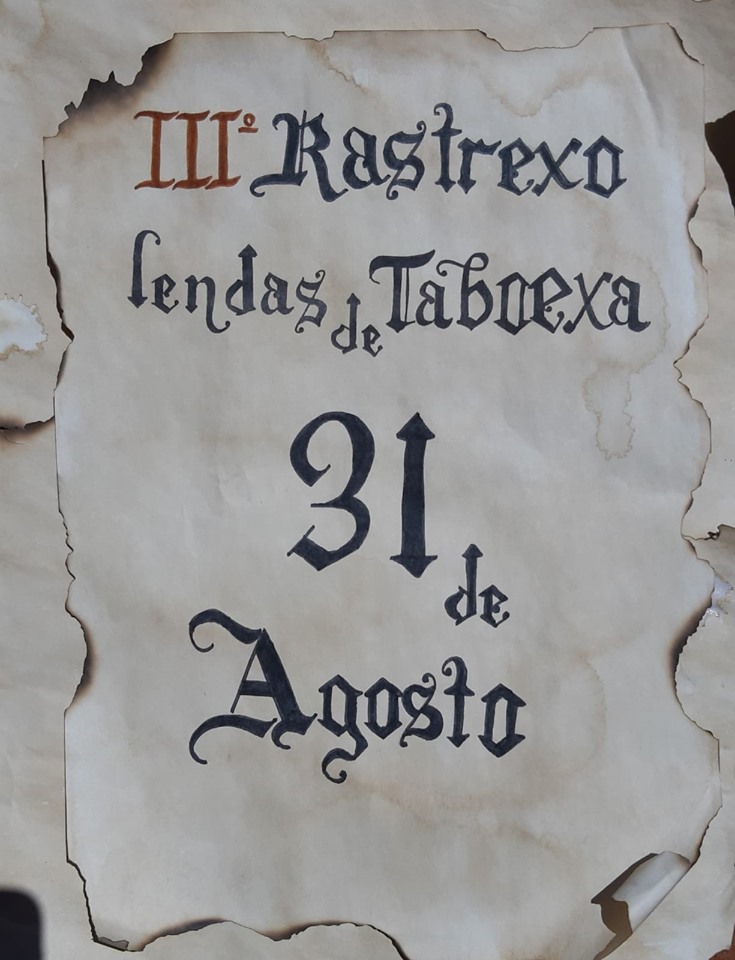 IIIº Rastrexo
lendas de Taboexa
31 de
Agosto